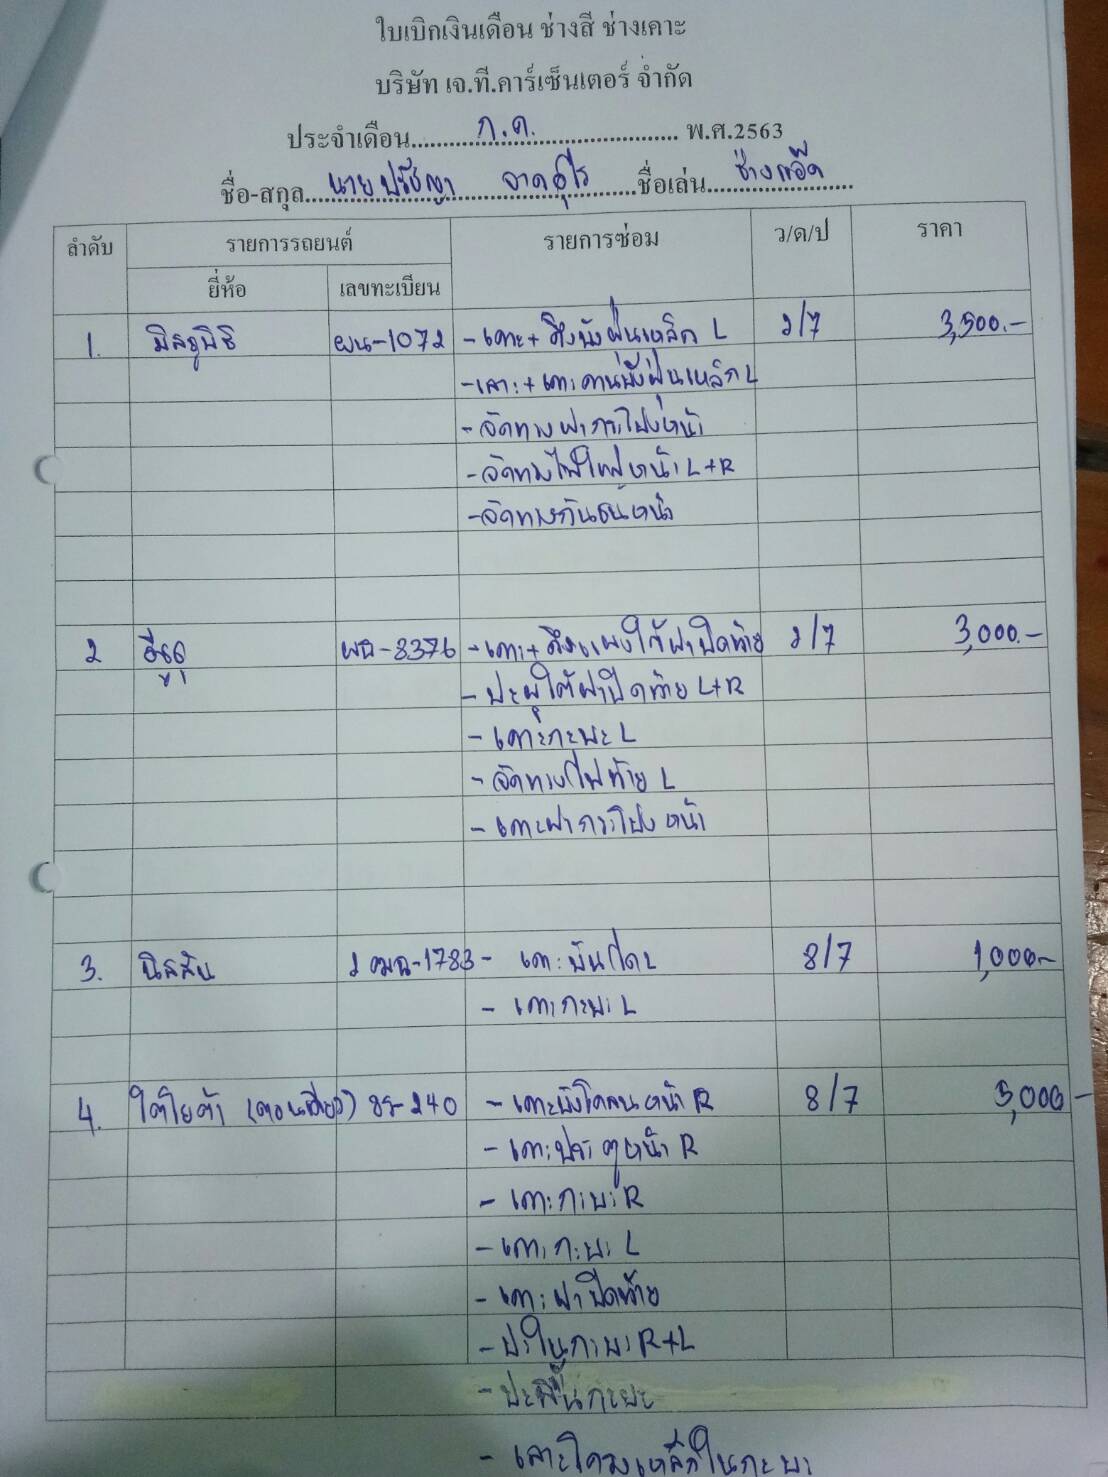 ใบเบิกเงินเดือน ช่างสี ช่างเคาะ
บริษัท เจ.ที.คาร์เซ็นเตอร์ จำกัด
ประจำเดือน ก.ค. พ.ศ.2563
ชื่อ-สกุล นายปรัชญา ชื่อเล่น ช่างแอ๊ด
ลำดับ รายการรถยนต์ รายการซ่อม ว/ด/ป ราคา
ยี่ห้อ เลขทะเบียน
1. มิตซูบิชิ ผน-1072 - เคาะ+ดึงบังฝุ่นเหล็ก L 2/7 3,500.-
- เลาะ+เคาะคานบังฝุ่นเหล็ก L
- จัดทางฝากระโปรงหน้า
- จัดทางไฟใหญ่หน้า L+R
- จัดทางกันชนหน้า
2 อีซูซุ ผฉ-8376 - เคาะ+ดึงแผงใต้ฝาปิดท้าย 2/7 3,000.-
- ปะผุใต้ฝาปิดท้าย L+R
- เคาะกะบะ L
- จัดทางไฟท้าย L
- เคาะฝากระโปรงหน้า
3. นิสสัน 2 ฒฉ-1783 - เคาะบันได L 8/7 1,000-
- เคาะกะบะ L
4. โตโยต้า (ตอนเดียว) -240 - เคาะบังโคลนหน้า R 8/7 5,000-
- เคาะประตูหน้า R
- เคาะกะบะ R
- เคาะกะบะ L
- เคาะฝาปิดท้าย
- ปะในกะบะ R+L
- ปะพื้นกะบะ
- เลาะโครงเหล็กในกะบะ